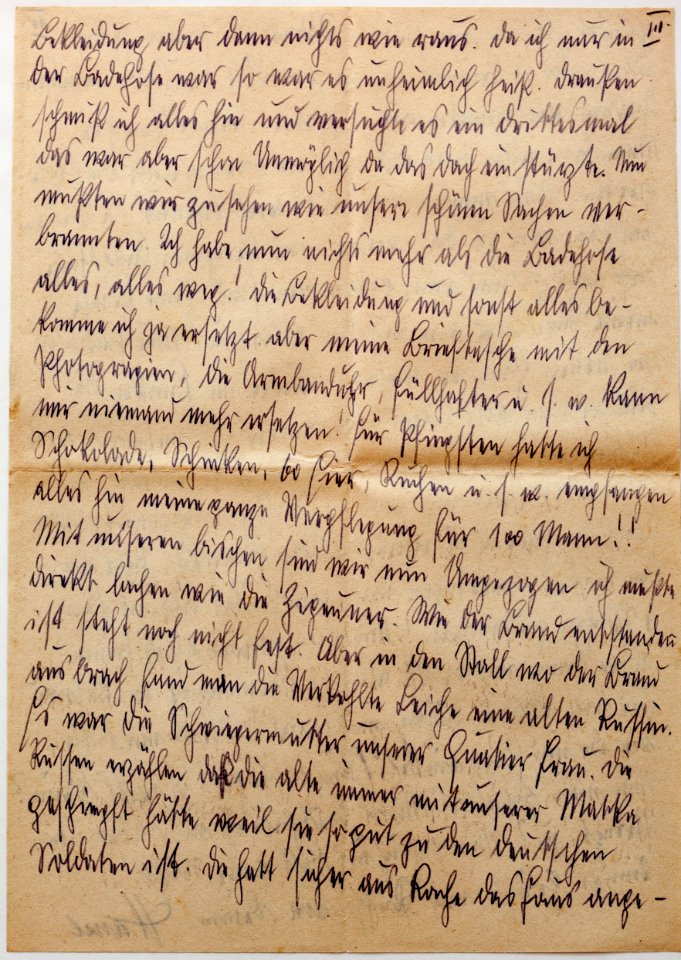 III.
Bekleidung, aber dann nichts wie raus. Da ich nur in
der Badehose war so war es unheimlich heiß. Draußen
schmiß ich alles hin und versuchte es ein drittesmal
das war aber schon Unmöglich da das dach einstürzte. Nun
mußten wir zusehen wie unsere schönen Sachen ver-
brannten. Ich habe nun nichts mehr als die Badehose
alles, alles weg! die Bekleidung und sonst alles be-
komme ich ja ersetzt aber meine Brieftasche mit den
Photograpien, die Armbanduhr, Füllhalter u. s. w. kann
mir niemand mehr ersetzen! Für Pfingsten hatte ich
Schokolade, Schinken, 60 Eier, Kuchen u. s. w. empfangen
alles hin meine ganze Verpflegung für 100 Mann!!
Mit unseren bischen sind wir nun Umgezogen ich mußte
direkt lachen wie die Zigeuner. Wie der Brand entstanden
ist steht noch nicht fest. Aber in den Stall wo der Brand
ausbrach fand man die Verkohlte Leiche eine alten Russin.
Es war die Schwiegermutter unserer Quatier Frau. Die
Russen erzählen daß die alte immer mit unserer Matka
geschimpft hätte weil sie so gut zu den deutschen
Soldaten ist. Die hatt sicher aus Rache das Haus ange-